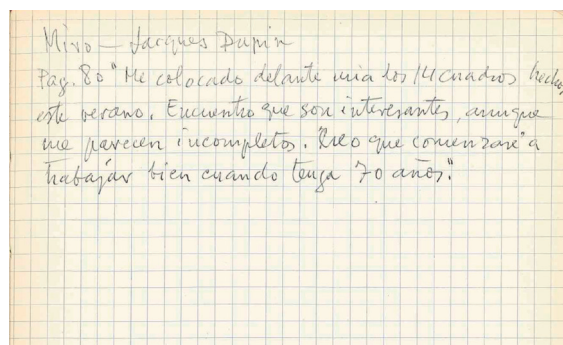 Miro — Jacques Dupin
Pag. 80 "He colocado delante mia los 14 cuadros hechos
este verano. Encuentro que son interesantes, aunque
me parecen incompletos. Creo que comenzaré a
trabajar bien cuando tenga 70 años."